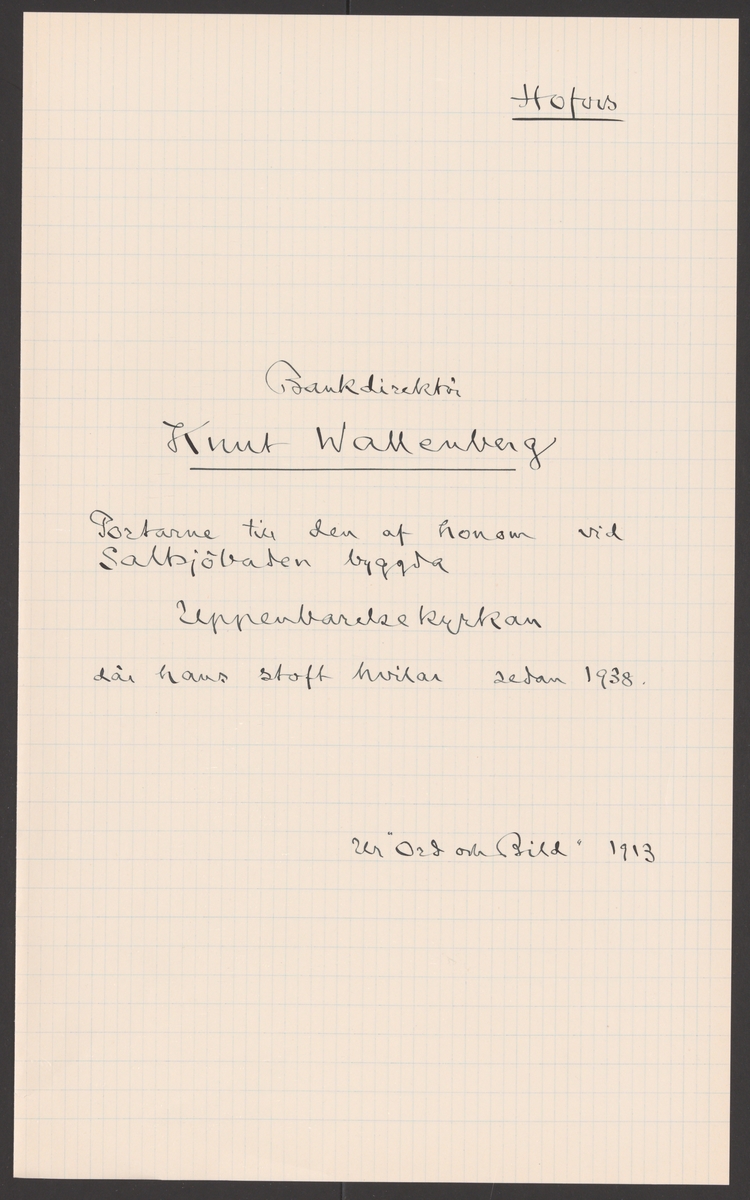 Hofors
Bankdirektör
Knut Wallenberg
Portarne till den af honom vid
Saltsjöbaden byggda
Uppenbarelsekyrkan
där hans stoft hvilar sedan 1938.
Ur "Ord och Bild" 1913